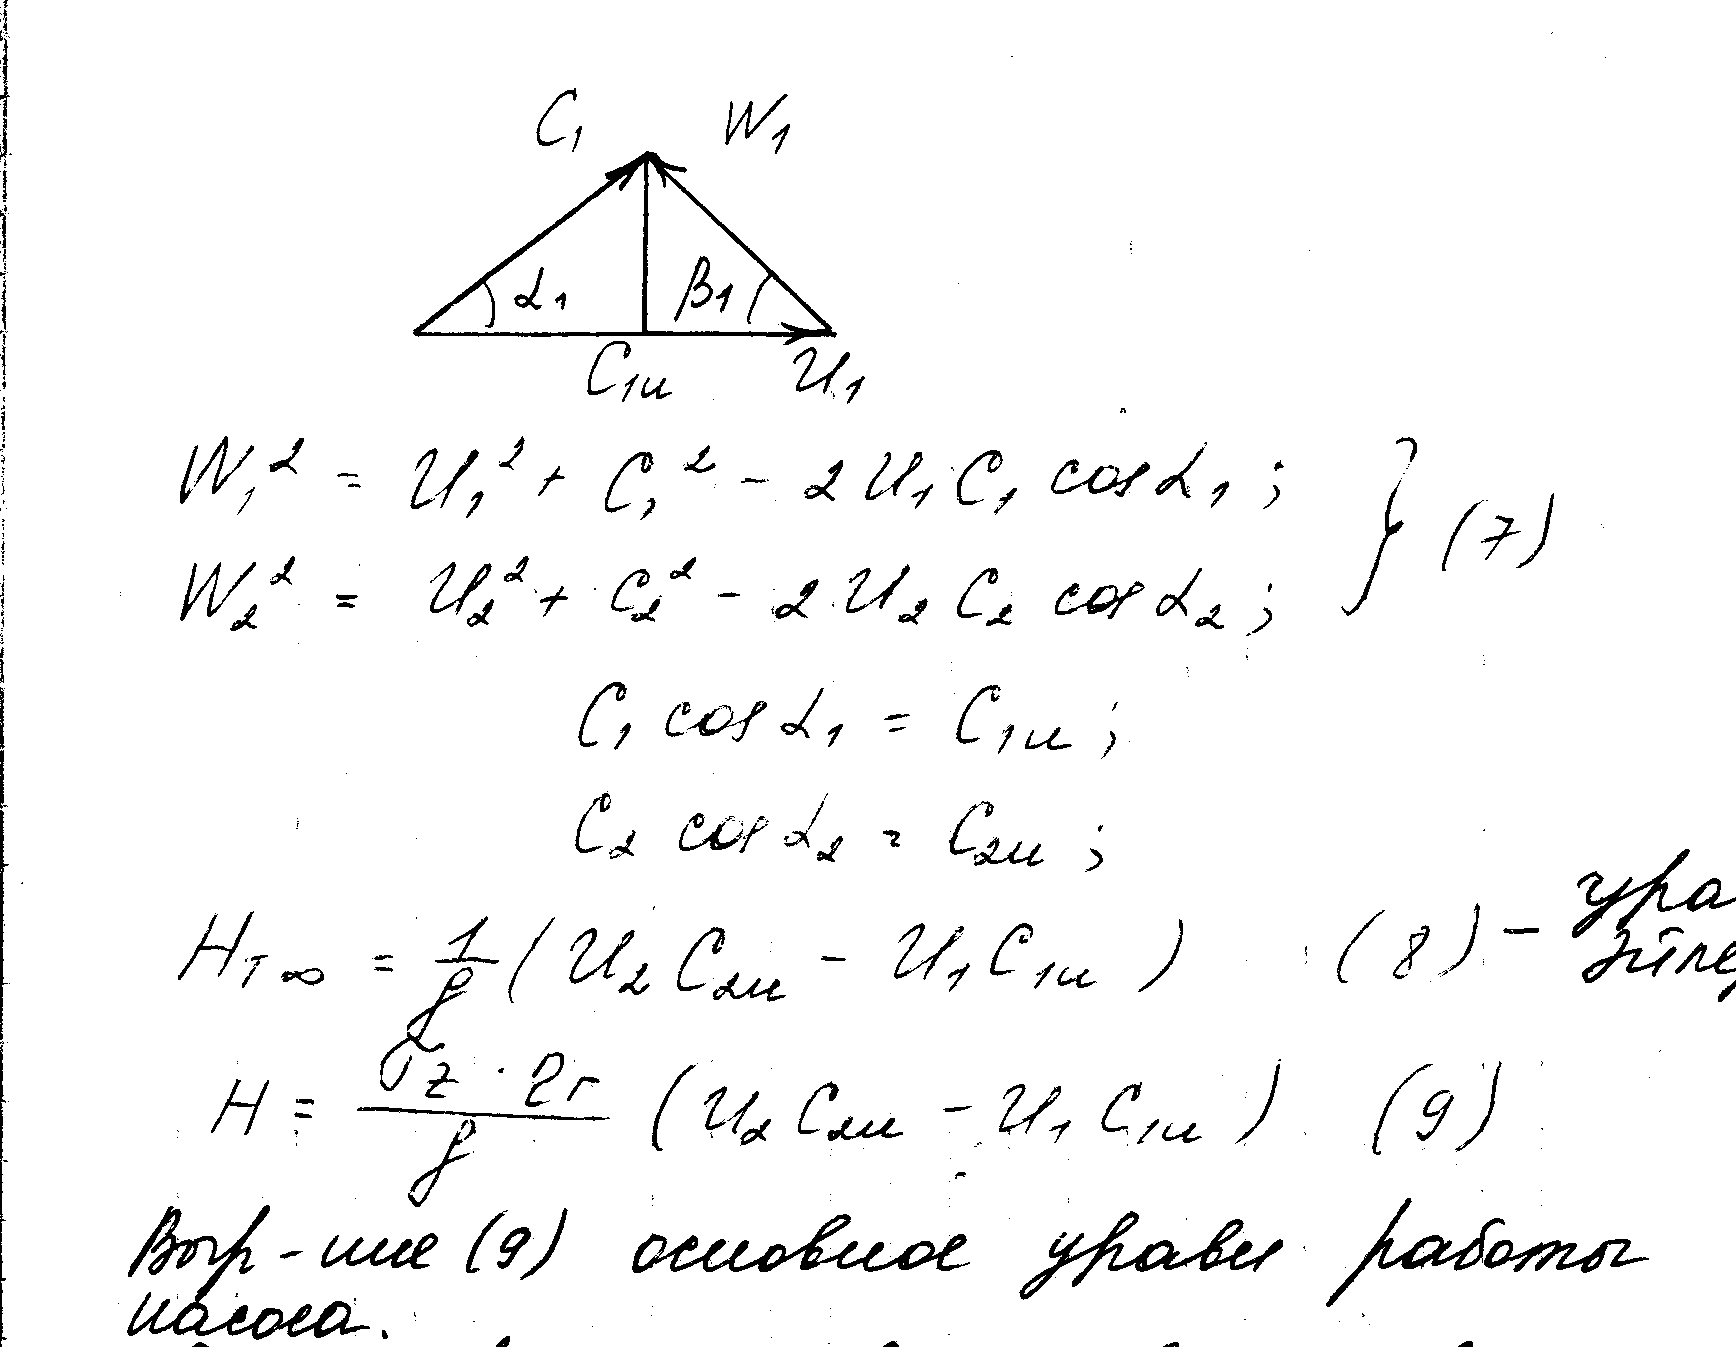 C₁ W₁
α₁ β₁
C₁u U₁
W₁² = U₁² + C₁² - 2 U₁ C₁ cos α₁ ; } (7)
W₂² = U₂² + C₂² - 2 U₂ C₂ cos α₂ ;
C₁ cos α₁ = C₁u ;
C₂ cos α₂ = C₂u ;
Hт∞ = 1/g ( U₂ C₂u - U₁ C₁u ) (8) - ура
Эйле
H = σz · ηг / g ( U₂ C₂u - U₁ C₁u ) (9)
Выр-ние (9) основное уравн работы
насоса.